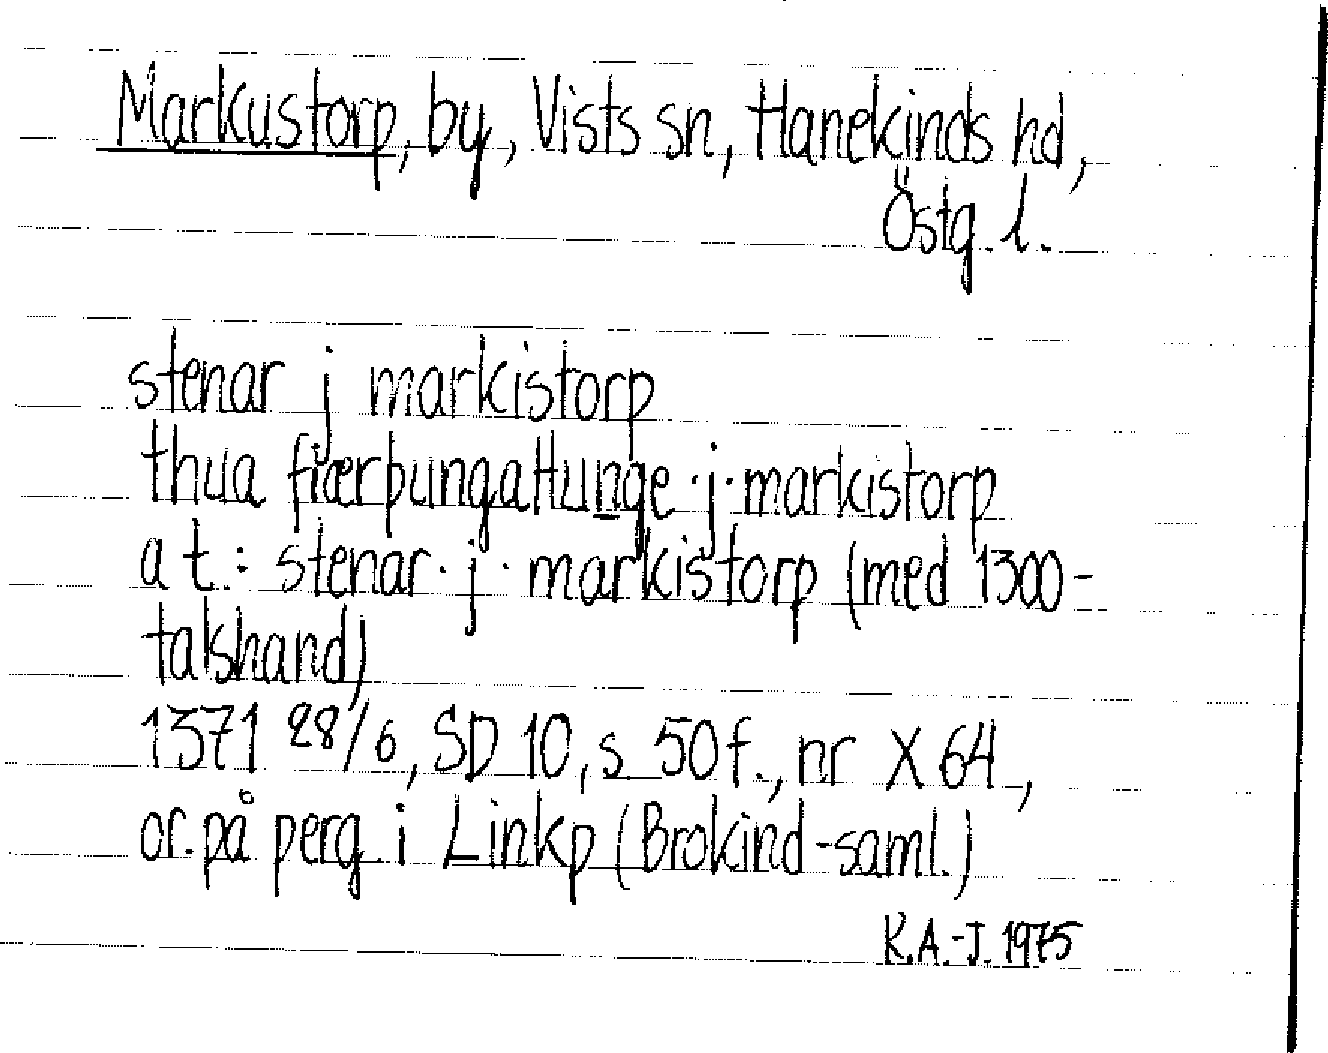 Markustorp, by, Vists sn, Hanekinds hd,
Östg. l.
stenar j markistorp
thua fiærþungattunge · j · markistorp
a t.: stenar · j · markistorp (med 1300-
talshand)
1371 28/6, SD 10, s 50 f., nr X 64,
or. på perg i Linkp (Brokind-saml.)
R.A.-J. 1975